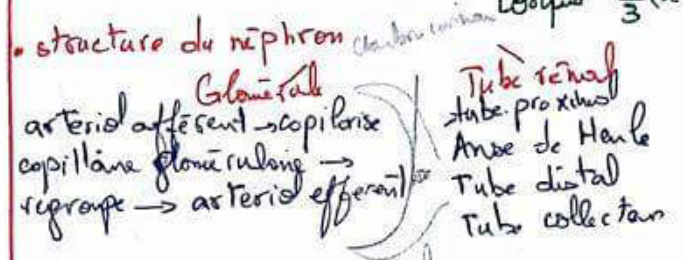 • structure du néphron
Glomérule
artériol afférent → copilarise
copillaire glomérulaire →
regroupe → artériol efferent
Tube rénal
tube proximal
Anse de Henle
Tube distal
Tube collecteur
3